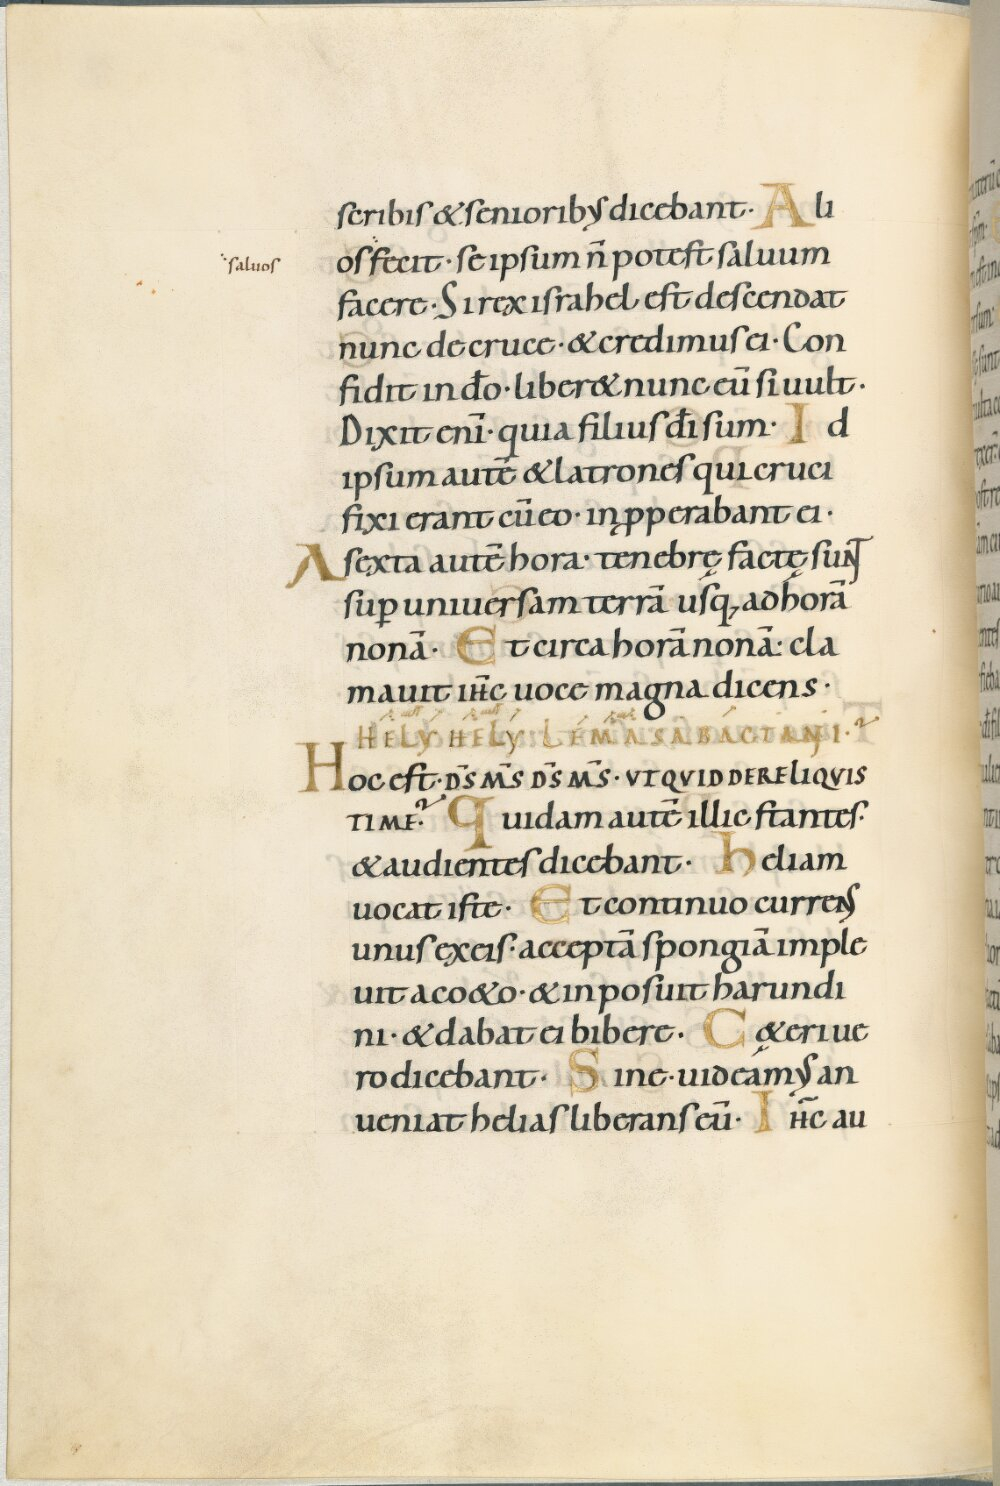 scribis & senioribus dicebant· Ali
salvos
os fecit· se ipsum n̄ potest saluum
facere· Si rex israhel est descendat
nunc de cruce· & credimus ei· Con
fidit in dō· liber& nunc eū si uult·
Dixit enī· quia filius dī sum· Id
ipsum autē & latrones qui cruci
fixi erant cū eo· inꝓperabant ei·
A sexta autē hora· tenebrę factę sunt
suꝑ uniuersam terrā usq; ad horā
nonā· Et circa horā nonā· cla
mauit ih̄c uoce magna dicens·
HELY HELY LEMA SABACTANI·
Hoc est· DS̄ MS̄ DS̄ MS̄· VT QVID DERELIQVIS
TI ME· Quidam autē illic stantes·
& audientes dicebant· heliam
uocat iste· Et continuo currens
unus ex eis· acceptā spongiā imple
uit aco&o· & inposuit harundi
ni· & dabat ei bibere· C&eri ue
ro dicebant· Sine· uideamus an
ueniat helias liberans eū· Ih̄c au